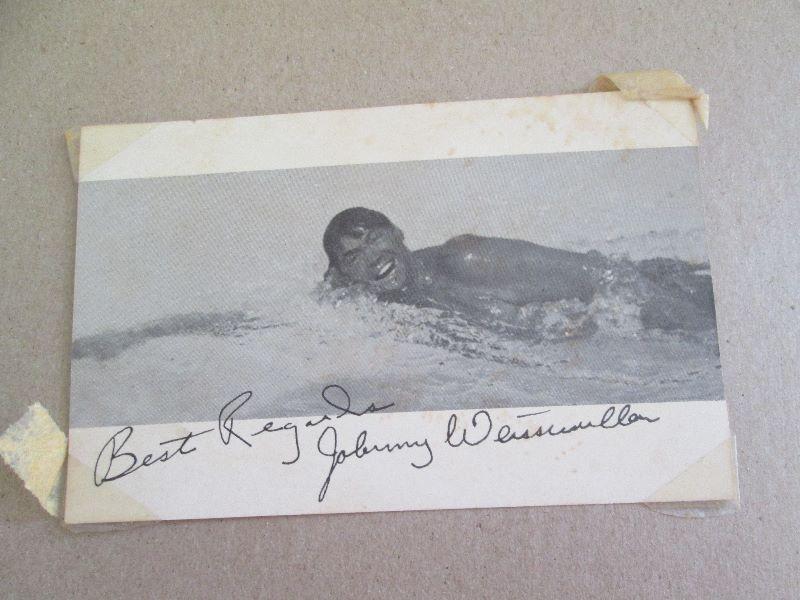 Best Regards
Johnny Weissmuller